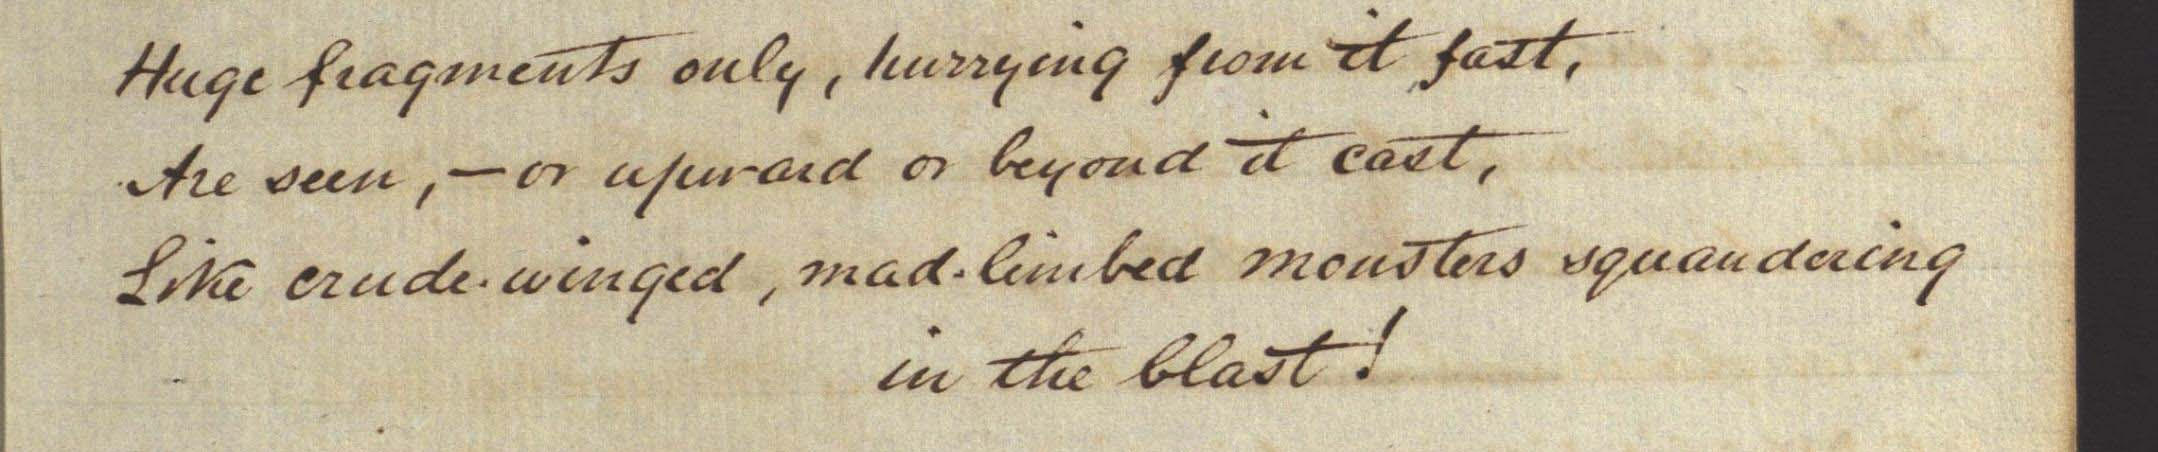 Huge fragments only, hurrying from it fast,
Are seen,—or upward or beyond it cast,
Like crude-winged, mad-limbed monsters squandering
in the blast!